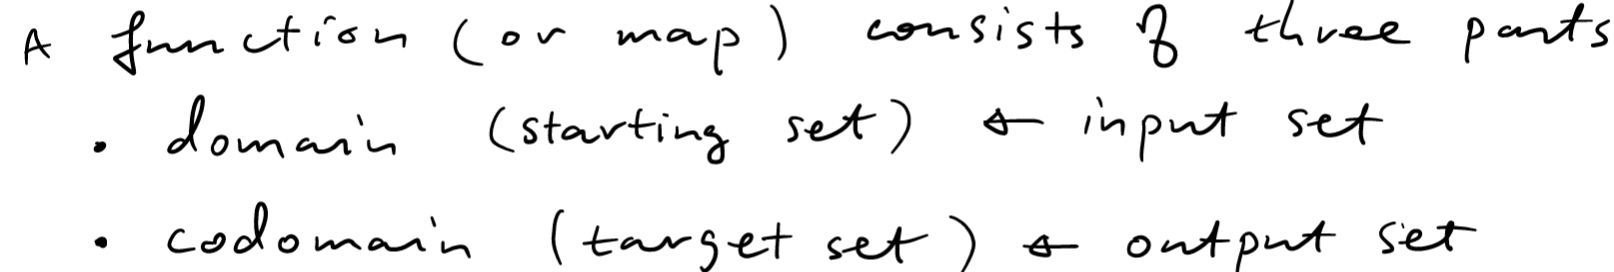 A function (or map) consists of three parts
• domain (starting set) ← input set
• codomain (target set) ← output set